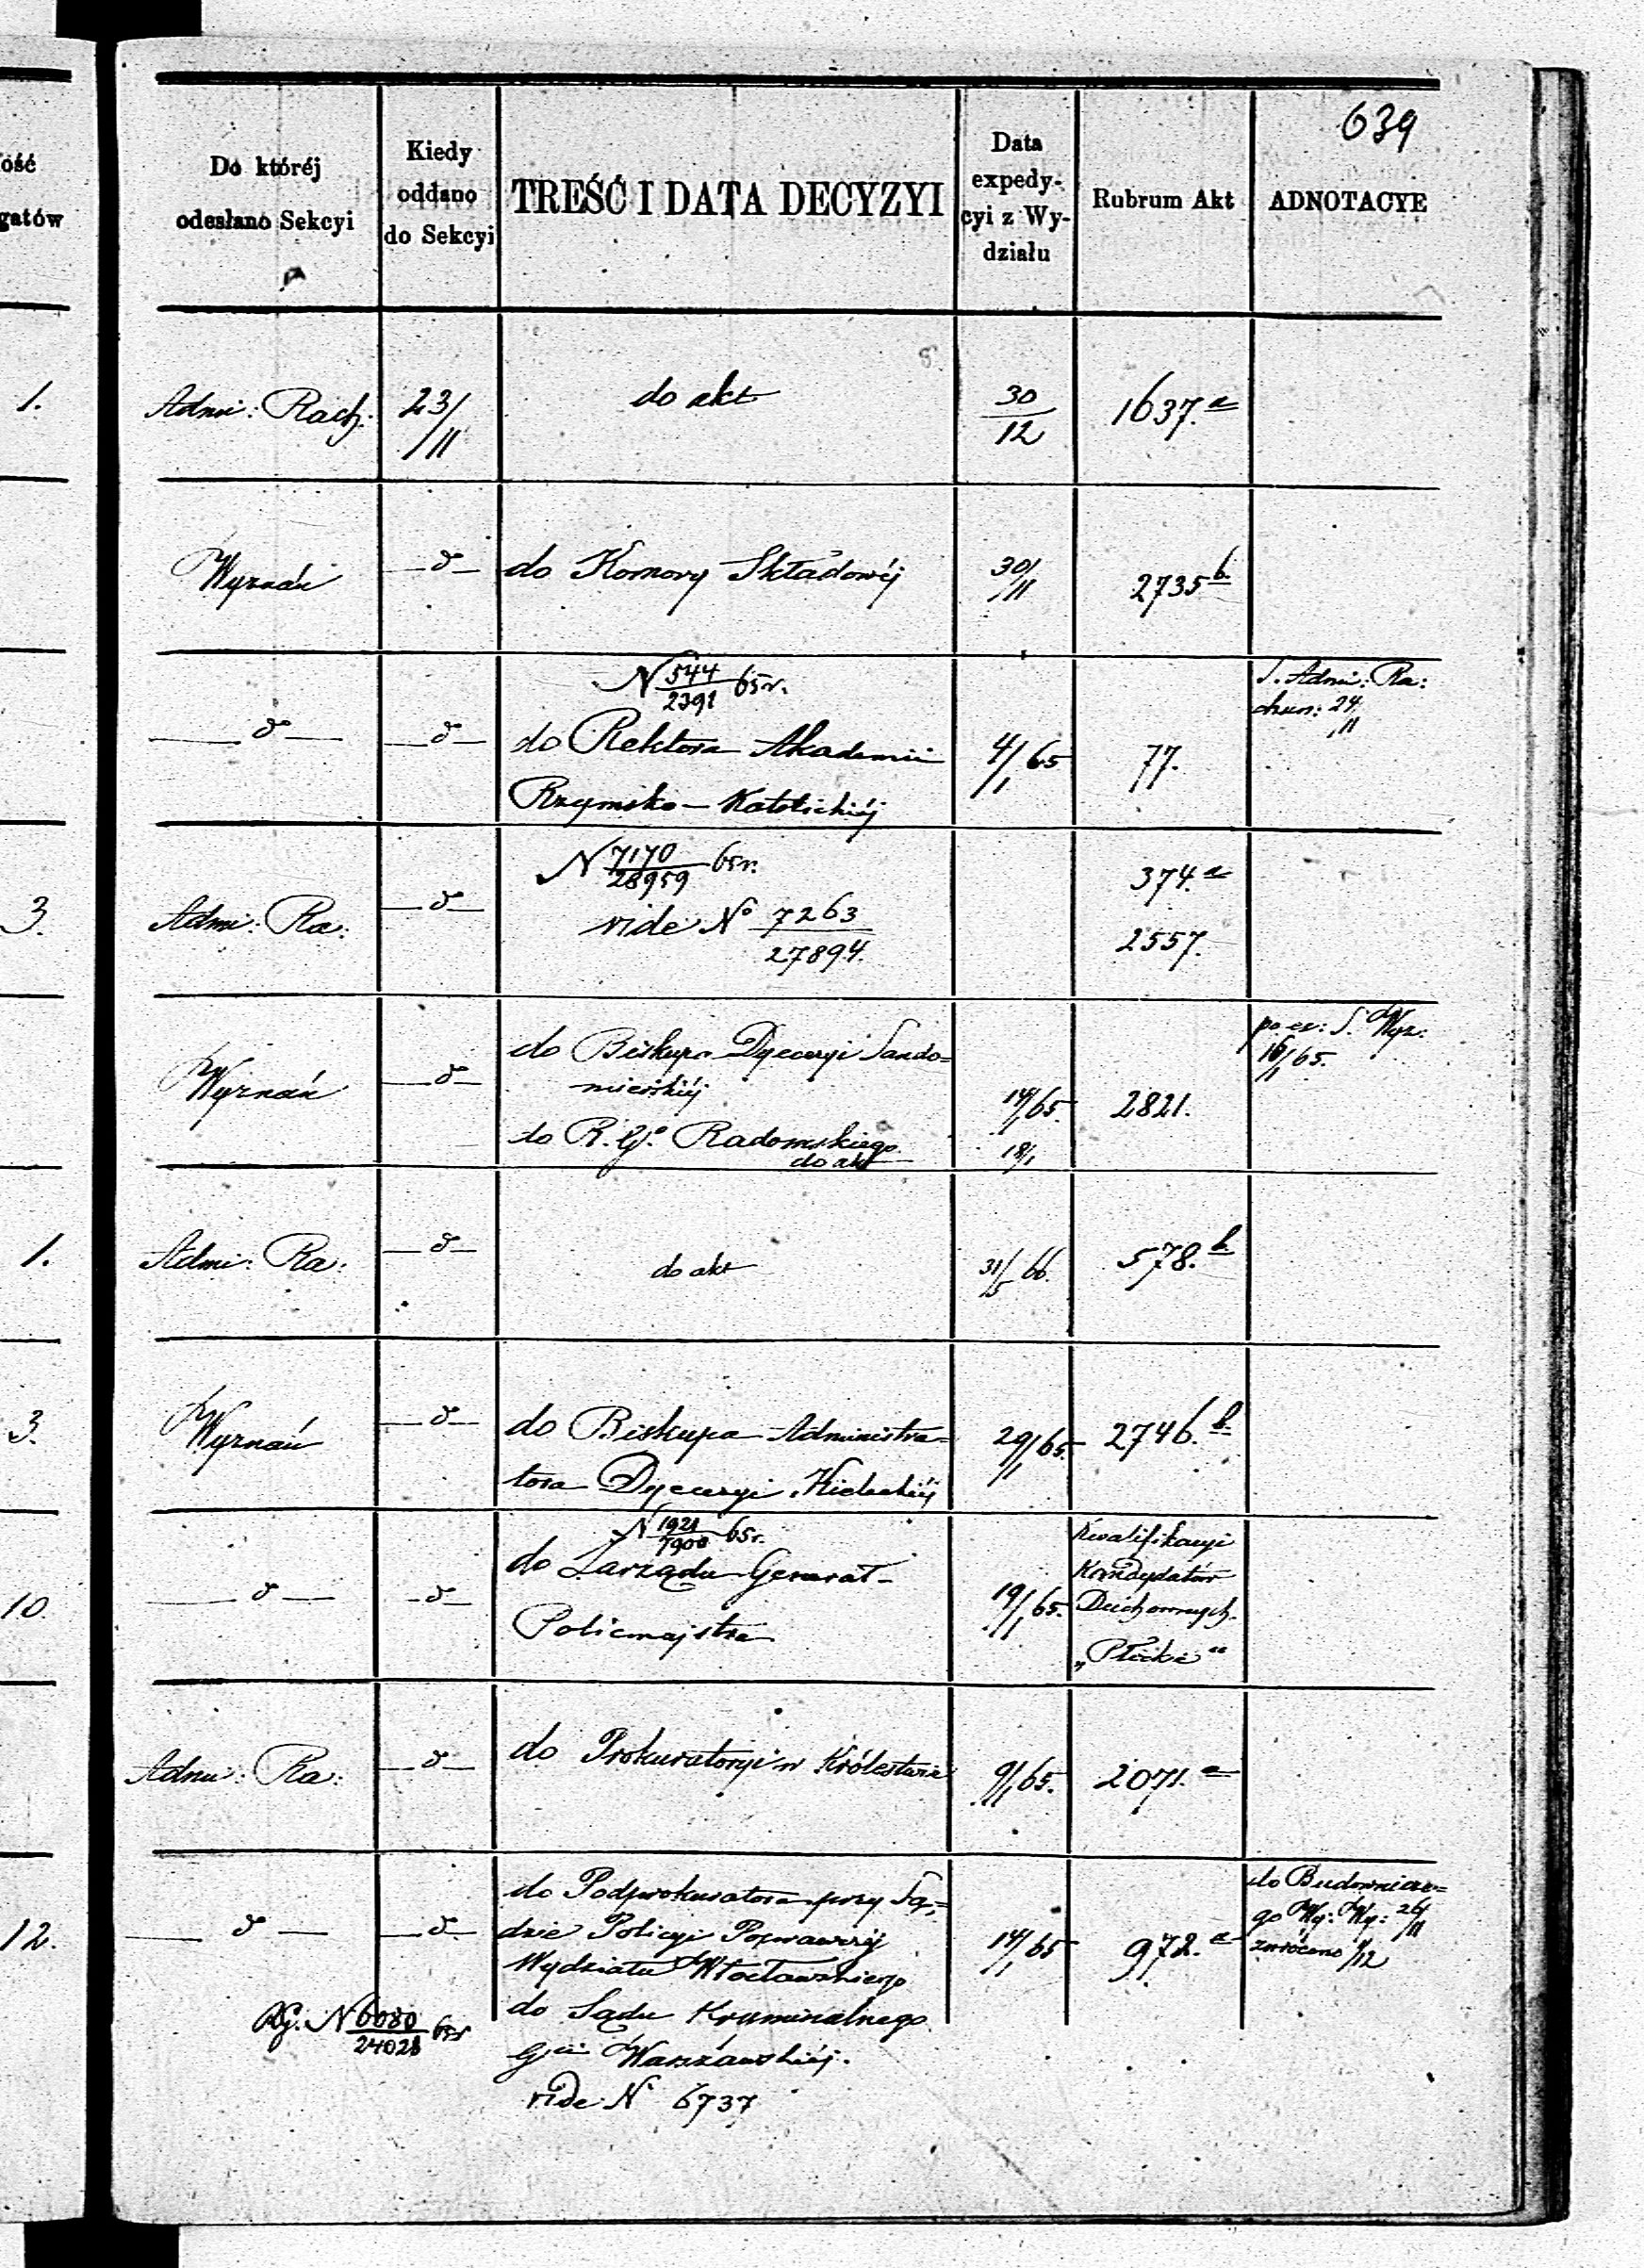 639
ość
gatów
Do któréj
odesłano Sekcyi
Kiedy
oddano
do Sekcyi
TREŚĆ I DATA DECYZYI
Data
expedy-
cyi z Wy-
działu
Rubrum Akt
ADNOTACYE
1.
Admi: Rach.
23/11
do akt
30/12
1637.a
Wyznań
—d—
do Komory Składowéj
30/11
2735 b.
N 544/2391 65r.
—d—
—d—
do Rektora Akademii
Rzymsko-Katolickiéj
4/1 65
77.
S. Admi: Ra:
chun: 24/11
3.
Admi: Ra:
—d—
N 7170/28959 65r.
vide No 7263/27894.
374.a
2557.
Wyznań
—d—
do Biskupa Dyecezyi Sando=
mierskiéj
do R. Go. Radomskiego
do akt
14/1 65
18/1
2821.
po ex: S. Wyz.
16/1 65.
1.
Admi: Ra:
—d—
do akt
31/5 66.
578.b.
3.
Wyznań
—d—
do Biskupa Administra=
tora Dyecezyi Kieleckiéj
29/1 65.
2746.b.
10.
—d—
—d—
N 1921/7900 65r.
do Zarządu Generał-
Policmajstra
19/1 65.
Kwalifikacyi
Kandydatów
Duchownych.
„Płockie"
Admi: Ra:
—d—
do Prokuratoryi w Królestwie
9/1 65.
2071.a
12.
—d—
—d—
do Podprokuratora przy Są=
dzie Policyi Poprawczéj
Wydziału Włocławskiego
do Sądu Kryminalnego
Gii Warszawskiéj.
vide N 6737
14/1 65
972.a
do Budownicze=
go Wy: Wy: 26/11
zwrócono 1/12
N 6080/24028 65r